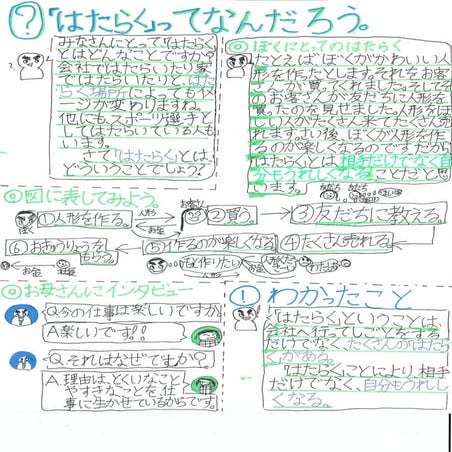 ?「はたらく」ってなんだろう。
みなさんにとって「はたらく」
とはどんなことですか。
会社ではたらいたり家
ではたらいたりと、はた
らく場所によってもイメ
ージが変わりますね。
他にもスポーツ選手と
してはたらいている人も
います。
さて「はたらく」とは、
どういうことでしょう?
◎ぼくにとってのはたらく
たとえば、ぼくがかわいい人
形を作ったとします。それをお客
さんが買ってくれました。そしてそ
のお客さんが友だちに人形を
買ったのを見せました。人形をほ
しい人がたくさん来てたくさん売
れます。さい後、ぼくが人形を作
るのが楽しくなるのです。だから
はたらくとは相手だけでなく自
分もうれしくなることだと思
います。
◎図に表してみよう。
ぼく
①人形を作る。
人形
お金
お客さん
②買う。
友だち
③友だちに教える。
④たくさん売れる。
お金
⑤作るのが楽しくなる
⑥お きゅうりょうを
もらう。
お金
もっと作りたい
人形
◎お母さんにインタビュー
Q.今の仕事は楽しいですか
A.楽しいです!!
Q.それはなぜですか?
A.理由は、とくいなこと
やすきなことを仕
事に生かせているからです。
! わかったこと
「はたらく」ということは、
会社へ行ってしごとをする
だけでなく、たくさんのはたら
くがある。
「はたらく」ことにより、相手
だけでなく、自分もうれし
くなる。